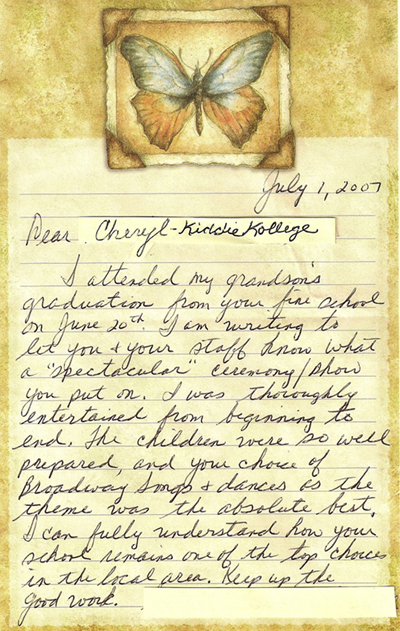 July 1, 2007
Dear Cheryl - Kiddie Kollege
I attended my grandson's
graduation from your fine school
on June 20th. I am writing to
let you + your staff know what
a "spectacular" ceremony/show
you put on. I was thoroughly
entertained from beginning to
end. The children were so well
prepared, and your choice of
Broadway songs + dances as the
theme was the absolute best.
I can fully understand how your
school remains one of the top choices
in the local area. Keep up the
good work.